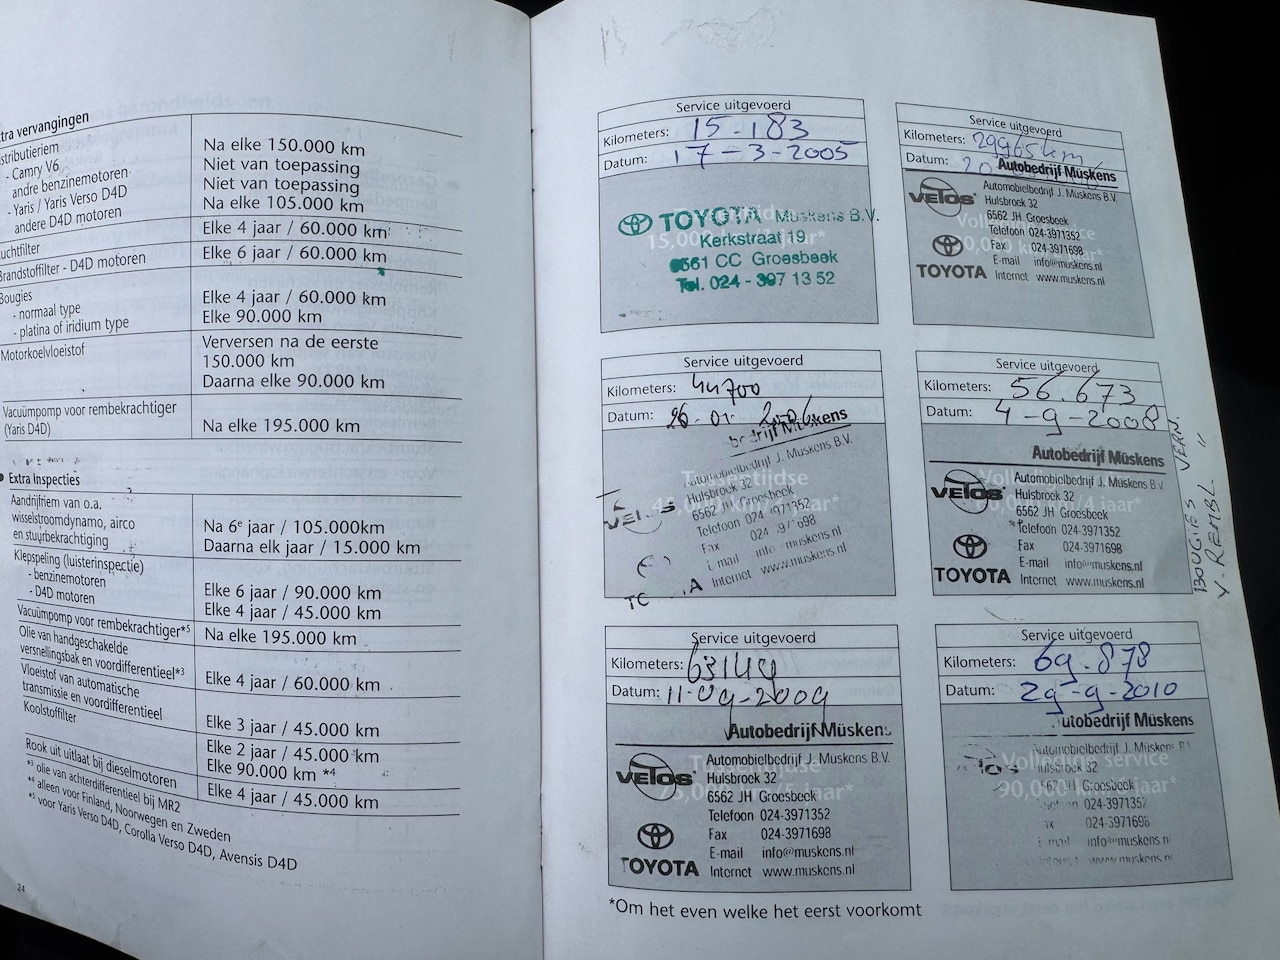 tra vervangingen
stributieriem
- Camry V6 Na elke 150.000 km
andre benzinemotoren Niet van toepassing
- Yaris / Yaris Verso D4D Niet van toepassing
andere D4D motoren Na elke 105.000 km
uchtfilter Elke 4 jaar / 60.000 km
Brandstoffilter - D4D motoren Elke 6 jaar / 60.000 km
Bougies
- normaal type Elke 4 jaar / 60.000 km
- platina of iridium type Elke 90.000 km
Motorkoelvloeistof Verversen na de eerste
150.000 km
Daarna elke 90.000 km
Vacuümpomp voor rembekrachtiger
(Yaris D4D) Na elke 195.000 km
• Extra Inspecties
Aandrijfriem van o.a.
wisselstroomdynamo, airco Na 6e jaar / 105.000km
en stuurbekrachtiging Daarna elk jaar / 15.000 km
Klepspeling (luisterinspectie)
- benzinemotoren Elke 6 jaar / 90.000 km
- D4D motoren Elke 4 jaar / 45.000 km
Vacuümpomp voor rembekrachtiger*5 Na elke 195.000 km
Olie van handgeschakelde
versnellingsbak en voordifferentieel*3 Elke 4 jaar / 60.000 km
Vloeistof van automatische
transmissie en voordifferentieel Elke 3 jaar / 45.000 km
Koolstoffilter Elke 2 jaar / 45.000 km
Elke 90.000 km *4
Rook uit uitlaat bij dieselmotoren Elke 4 jaar / 45.000 km
*3 olie van achterdifferentieel bij MR2
*4 alleen voor Finland, Noorwegen en Zweden
*5 voor Yaris Verso D4D, Corolla Verso D4D, Avensis D4D
24
Service uitgevoerd
Kilometers: 15-183
Datum: 17-3-2005
TOYOTA Muskens B.V.
15,000 km/1 jaar*
Kerkstraat 19
6561 CC Groesbeek
Tel. 024 - 397 13 52
Service uitgevoerd
Kilometers: 29965km
Datum: 20
Autobedrijf Müskens
VELOS
Automobielbedrijf J. Muskens B.V.
Hulsbroek 32
6562 JH Groesbeek
Telefoon 024-3971352
Fax 024-3971698
E-mail info@muskens.nl
TOYOTA Internet www.muskens.nl
Service uitgevoerd
Kilometers: 44700
Datum: 26-01-2006
bedrijf Müskens
Automobielbedrijf J. Muskens B.V.
Tussentijdse
Hulsbroek 32
6562 JH Groesbeek
Telefoon 024 3971352
Fax
E-mail info muskens.nl
Internet www.muskens.nl
Service uitgevoerd
Kilometers: 56.673
Datum: 4-9-2008
Autobedrijf Müskens
VELOS
Automobielbedrijf J. Muskens B.V.
Hulsbroek 32
6562 JH Groesbeek
Telefoon 024-3971352
Fax 024-3971698
E-mail info@muskens.nl
TOYOTA Internet www.muskens.nl
BOUGIES VERN.
V. REMBL "
Service uitgevoerd
Kilometers: 63144
Datum: 11-09-2009
Autobedrijf Müskens
VELOS
Automobielbedrijf J. Muskens B.V.
Tussentijdse
Hulsbroek 32
75,000 km/5 jaar*
6562 JH Groesbeek
Telefoon 024-3971352
Fax 024-3971698
E-mail info@muskens.nl
TOYOTA Internet www.muskens.nl
Service uitgevoerd
Kilometers: 69.878
Datum: 29-9-2010
utobedrijf Müskens
Automobielbedrijf J. Muskens B.V.
Volledige service
Hulsbroek 32
90,000 km/6 jaar*
6562 JH Groesbeek
024-3971352
024-3971698
info@muskens.nl
www.muskens.nl
*Om het even welke het eerst voorkomt